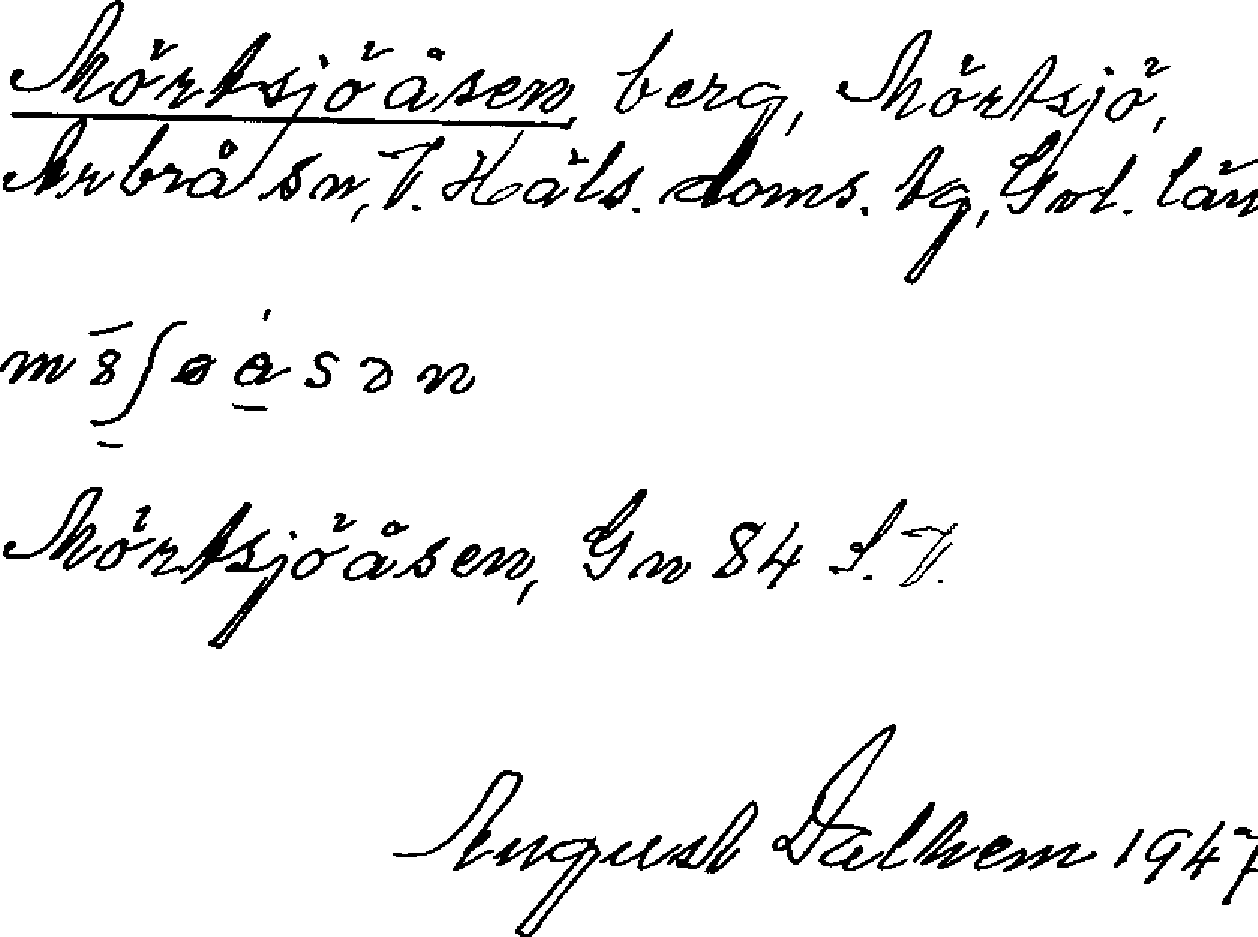 Mörtsjöåsen, berg, Mörtsjö,
Arbrå sn, V. Häls. doms. tg, Gvl. län
Mörtsjöåsen, Gn 84 S.V.
August Dalhem 1947